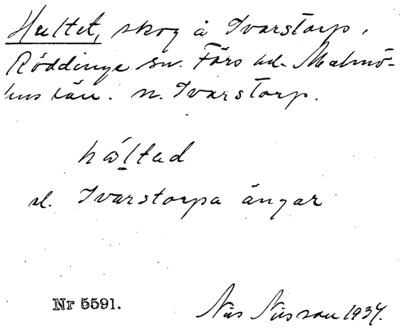 Hultet, skog å Ivarstorp,
Röddinge sn. Färs hd. Malmö-
hus län. n. Ivarstorp.
hå̠ltad
el. Ivarstorpa ängar
Nr 5591.
Nils Nilsson 1934.